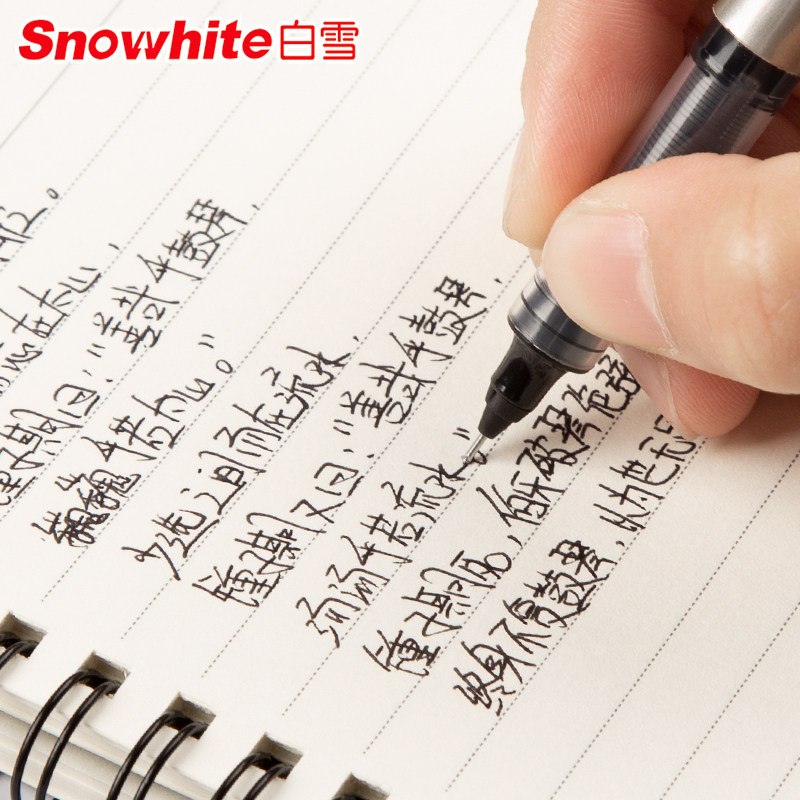 Snowhite白雪
在太山,
钟子期曰:"善哉乎鼓琴,
巍巍乎若太山。"
少选之间而在流水,
钟子期又曰:"善哉乎鼓琴,
汤汤乎若流水。"
钟子期死,伯牙破琴绝弦
终身不复鼓琴,以为世无足